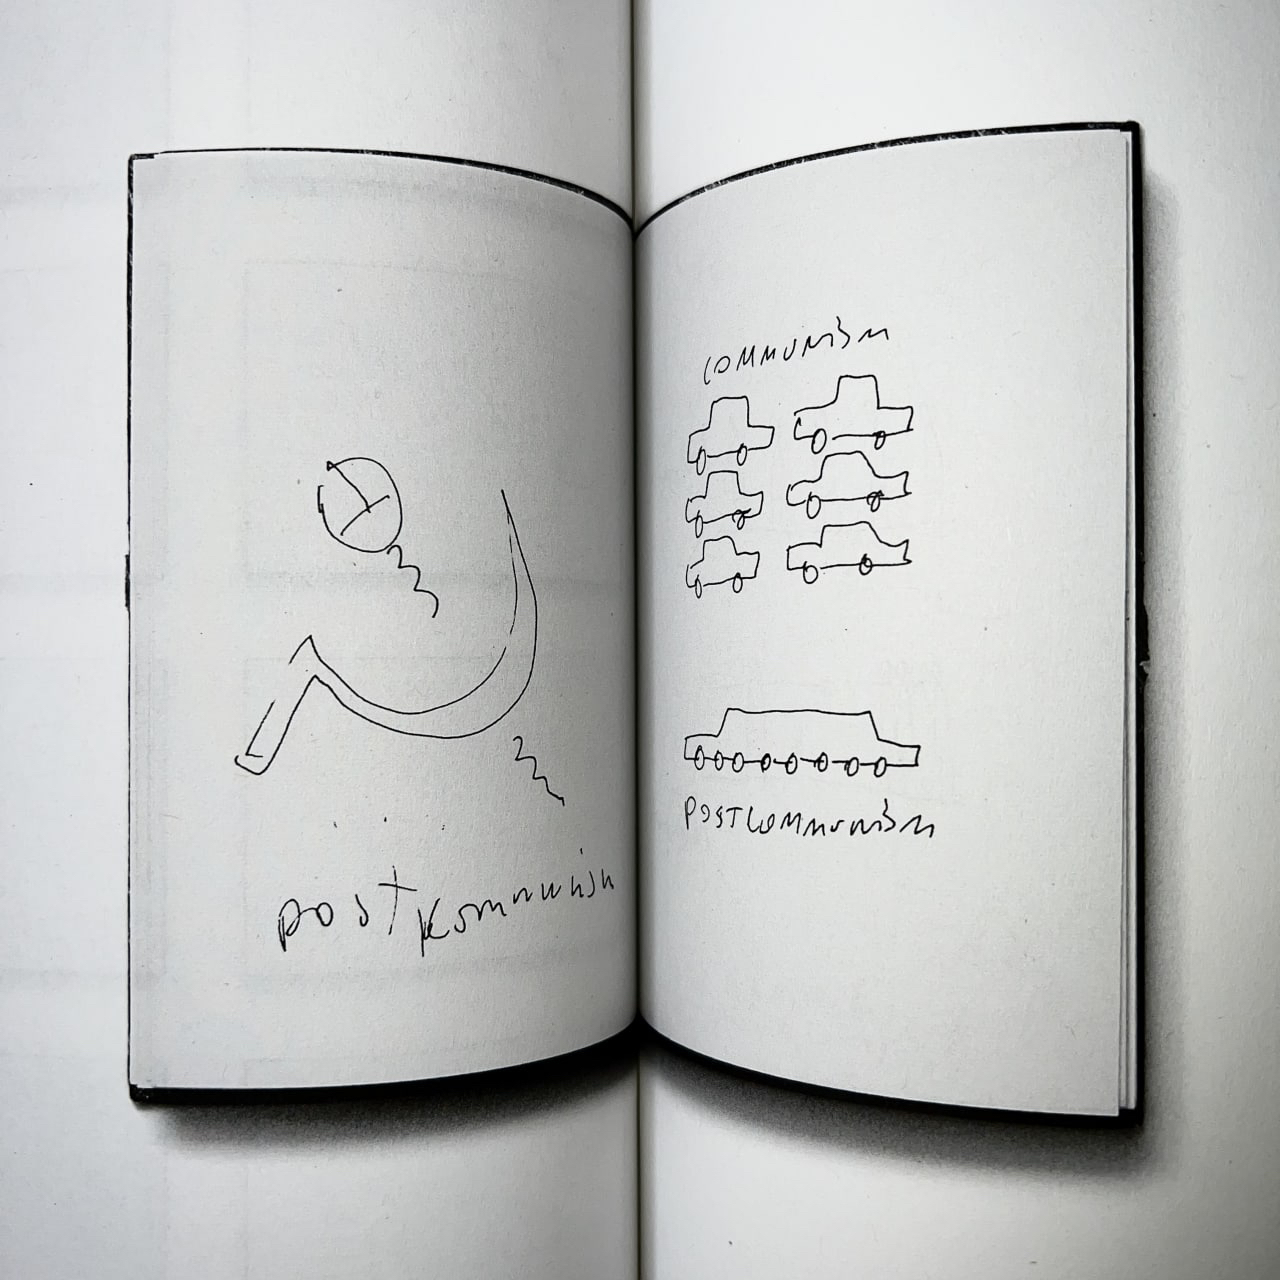 post Kommunism
COMMUNISM
POSTCOMMUNISM